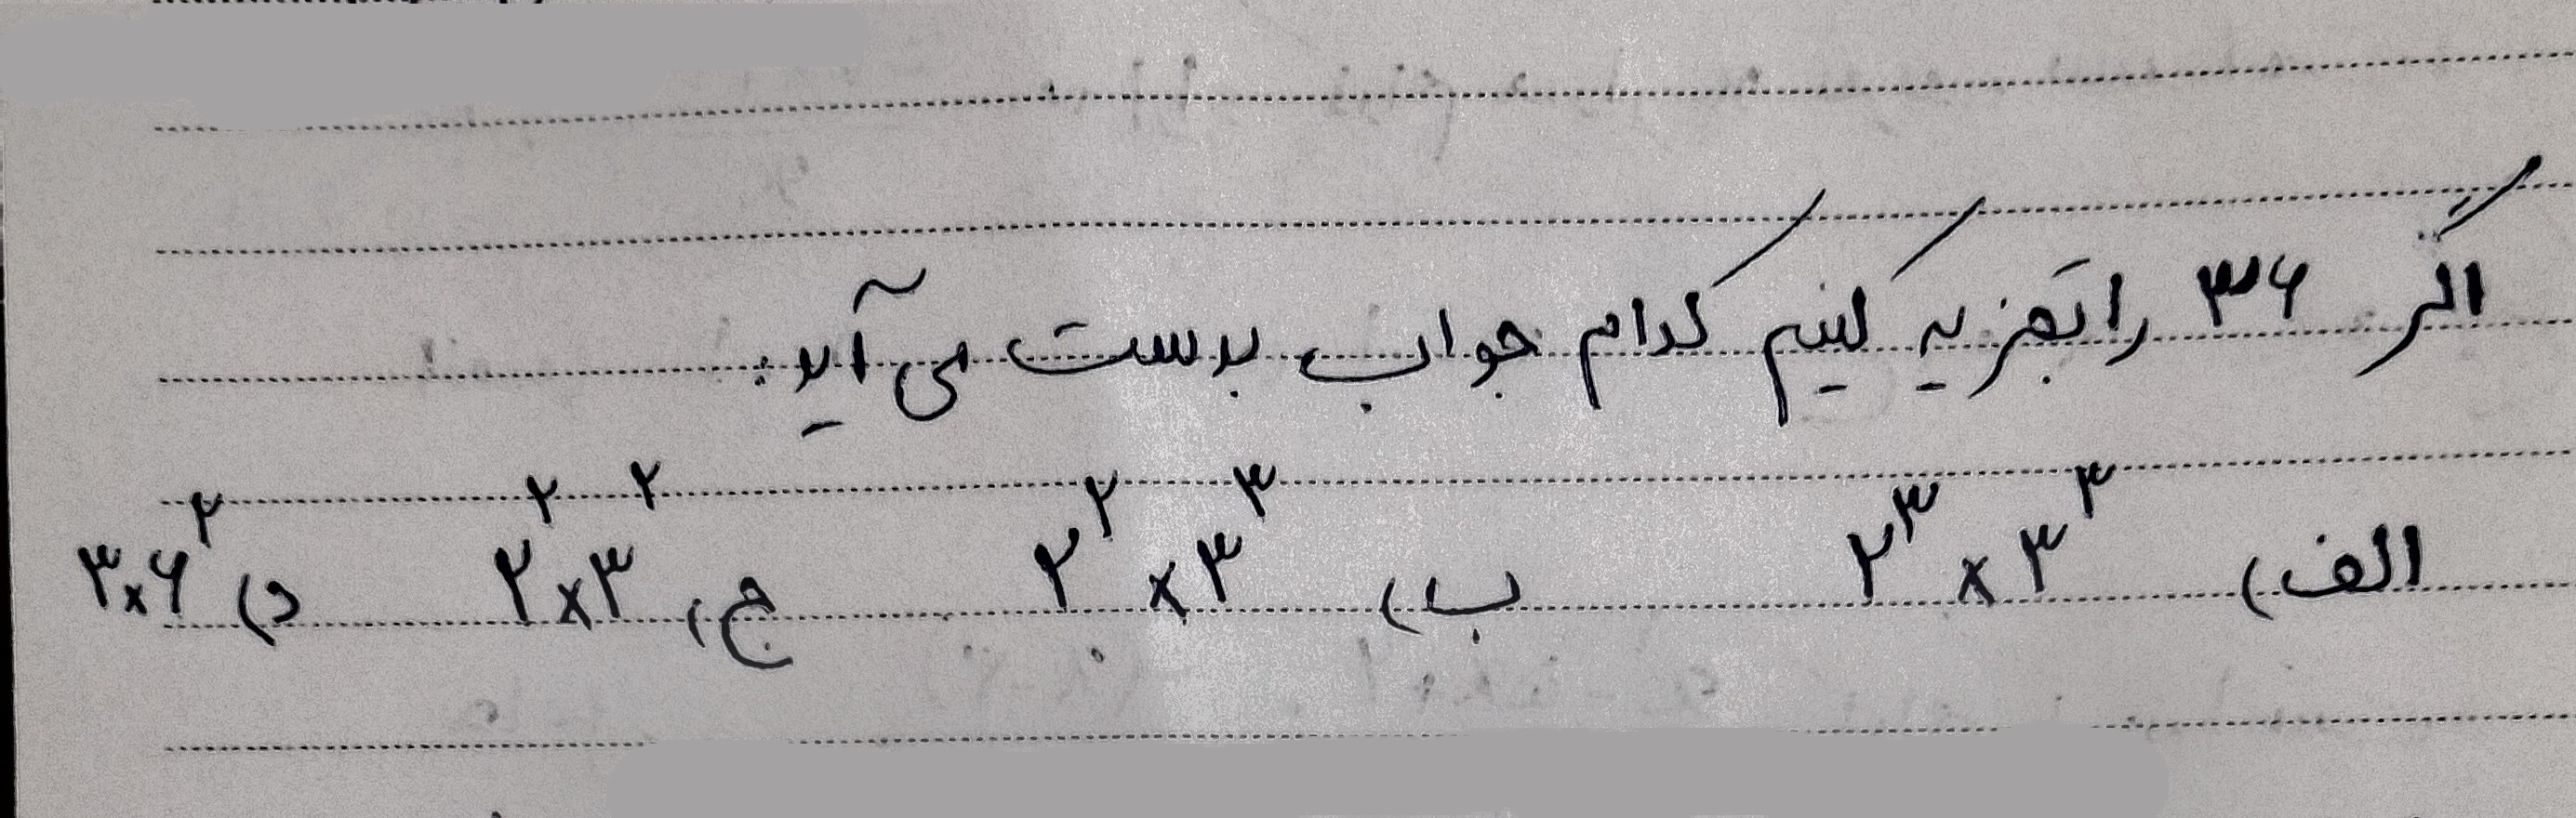 اگر ۳۶ را تجزیه کنیم کدام جواب بدست می آید:
الف) ۲^۳ × ۳^۳ ب) ۲^۲ × ۳^۳ ج) ۲^۲ × ۳^۲ د) ۳×۶^۲